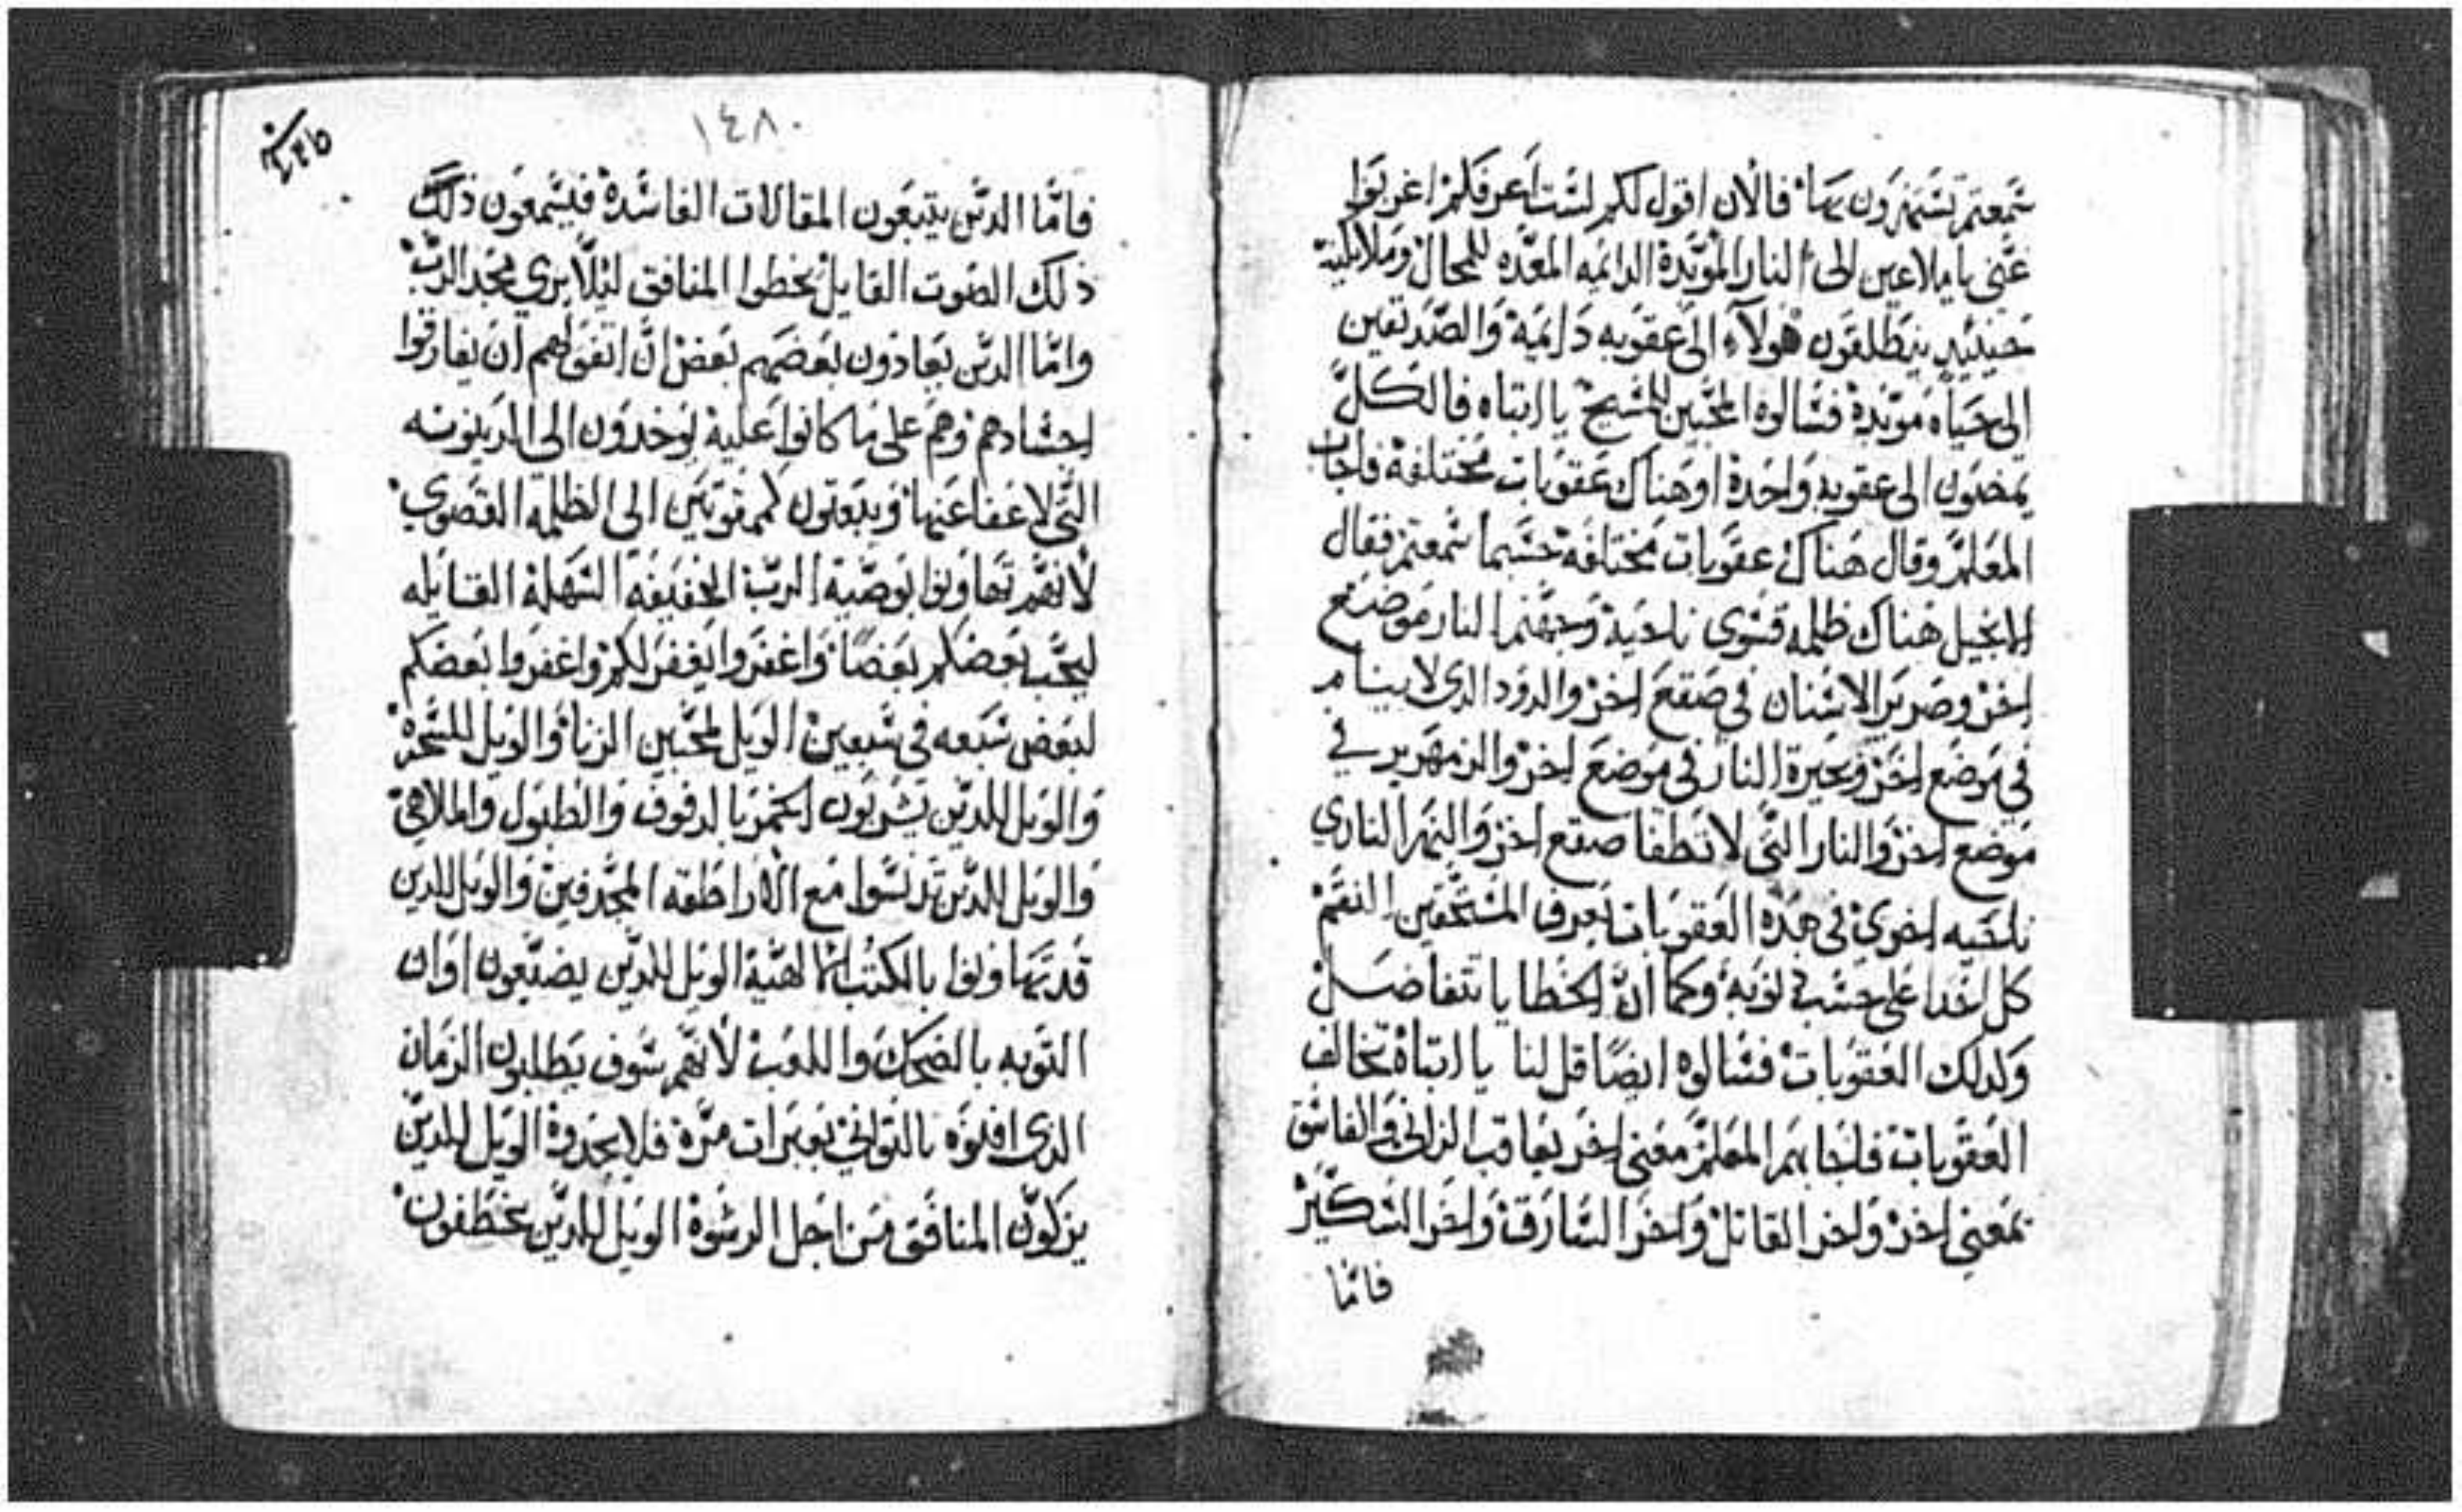 سمعتم تستهزون بها فالان اقول لكم لست اعرفكم اغربوا
عني ياملاعين الى النار المؤبدة الدايمه المعده للمحال وملايكته
حينيد ينطلقون هولاء الى عقوبه دايمة والصديقين
الى حياه موبدة فسالوه المحبين للمسيح يا ابتاه فالكل
يمضون الى عقوبه واحدة او هناك عقوبات مختلفة فاجاب
المعلم وقال هناك عقوبات مختلفة حسبما سمعتم فقال
الانجيل هناك ظلمه قسوى ناحية وجهنم النار موضع
اخر وصرير الاسنان في صقع اخر والدود الدي لا ينام
في موضع اخر وبحيرة النار في موضع اخر والزمهرير في
موضع اخر والنار التي لا تطفا صقع اخر والنهر الناري
ناحيه اخرى في هده العقوبات يعرف المستحقين النقم
كل احدا على حسب دنوبه وكما ان الخطايا تتفاضل
وكدلك العقوبات فسالوه ايضا قل لنا يا ابتاه تخالف
العقوبات فاجابهم المعلم معنى اخر يعاقب الزاني والفاسق
بمعنى اخر واخر القاتل واخر السارق واخر السكير
فامّا
١٤٨
فامّا الدين يتبعون المقالات الفاسدة فيسمعون ذلك
ذلك الصوت القايل يخطوا المنافق ليلّا يري مجد الرب
وامّا الدين يعادون بعضهم بعض ان اتفق لهم ان يفارقوا
اجسادهم وهم على ما كانوا عليه يوخدون الى الدينونه
التي لا عفا عنها ويبعتون كممقوتين الى الظلمه القصوي
لانهم تهاونوا بوصية الرب الخفيفه السهلة القايله
ليحب بعضكم بعضا واغفروا يغفر لكم واغفروا بعضكم
لبعض سبعه في سبعين الويل لمحبين الزنا والويل للسحرة
والويل للدين يشربون الخمر بالدفوف والطبول والملاهي
والويل للدين تدنسوا مع الاراطقه المجدفين والويل للدين
قد تهاونوا بالكتب الالهية الويل للدين يضيعون اوان
التوبه بالضحك واللعب لانهم سوف يطلبون الزمان
الدى افنوه بالتواني بعبرات مرة فلا يجدوه الويل للدين
يزكون المنافق من اجل الرشوة الويل للدين يخطفون